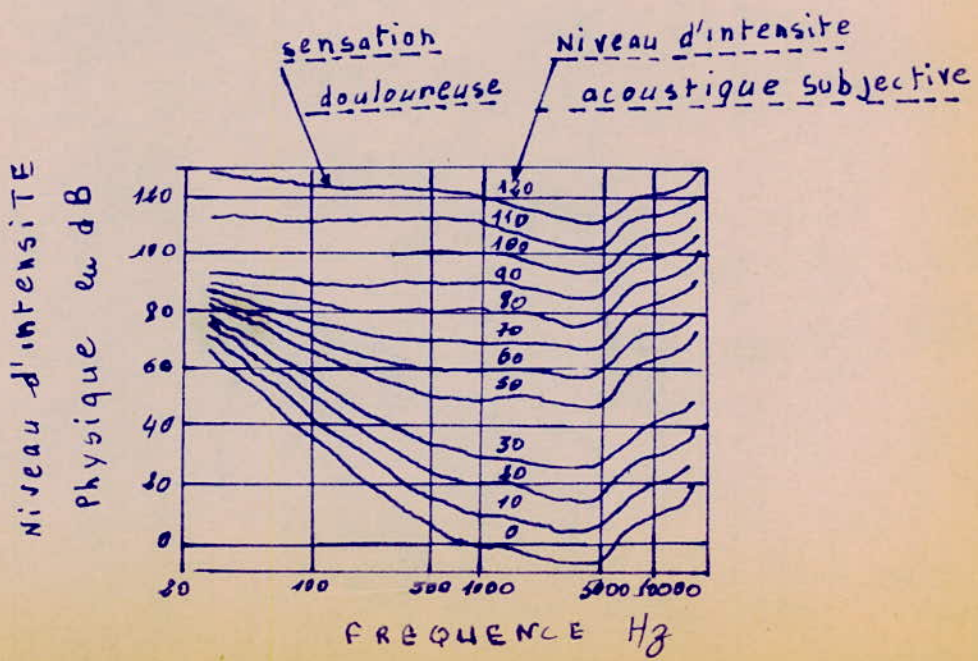 sensation
douloureuse
Niveau d'intensite
acoustique subjective
Niveau d'intensiTE
Physique en dB
120
100
80
60
40
20
0
120
110
100
90
80
70
60
50
30
20
10
0
20 100 500 1000 5000 10000
FREQUENCE Hz